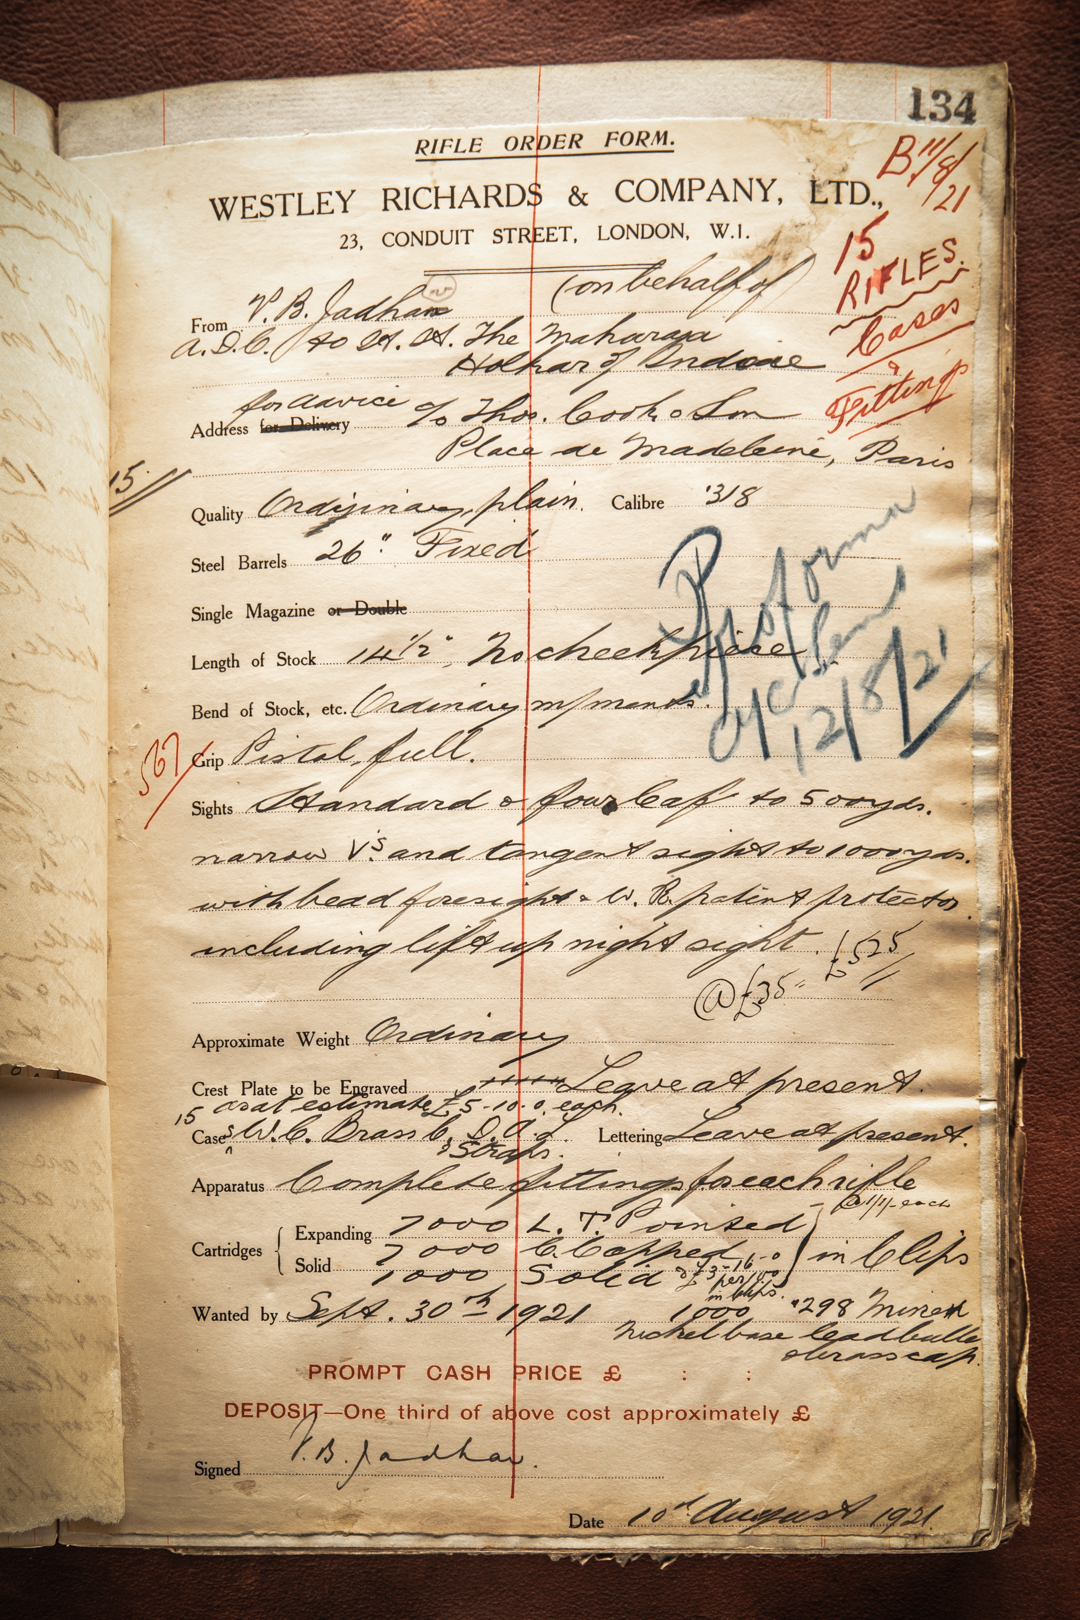 134
RIFLE ORDER FORM.
B 11/8/21
WESTLEY RICHARDS & COMPANY, LTD.,
23, CONDUIT STREET, LONDON, W.1.
15
RIFLES.
Cases
&
Fittings
From V. B. Jadhav (on behalf of)
A.D.C. to H. H. The Maharaja
Holkar of Indore
for advice
Address for Delivery c/o Thos. Cook & Son
Place de Madeleine, Paris
15//
Quality Ordinary, plain. Calibre .318
Steel Barrels 26" Fixed
Single Magazine or Double
Proforma
a/c sent
12/8/21
Length of Stock 14 1/2", No cheekpiece
Bend of Stock, etc. Ordinary m/ments.
567/
Grip Pistol, full.
Sights Standard & four leaf to 500 yds.
narrow V's. and tangent sight to 1000 yds.
with bead foresight & W. R. patent protector
including lift up night sight.
@ £35 = £525//
Approximate Weight Ordinary
Crest Plate to be Engraved Leave at present.
as at estimate £5-10-0. each.
15 Cases W. C. Brass C. D. A. L. Lettering Leave at present.
& Straps.
Apparatus Complete fittings for each rifle
@ 1/1/- each
Cartridges Expanding 7000 L. T. Pointed
7000 C. Capped in Clips
Solid 1000 Solid @ £3-16-0
per 100
in Clips.
Wanted by Sept. 30th 1921 1000 .298 Minex
Nickel base lead bullet
& brass cap.
PROMPT CASH PRICE £ : :
DEPOSIT—One third of above cost approximately £
Signed V. B. Jadhav.
Date 10th August 1921.